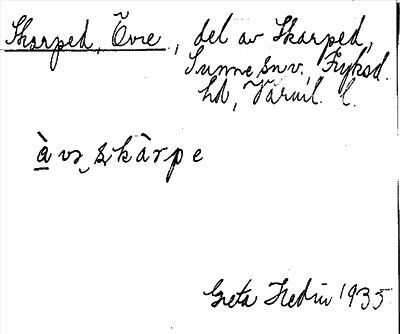 Skarped, Övre, del av Skarped,
Sunne sn v., Fryksd.
hd, Värml. l.
à və skàrpe
Greta Hedin 1935